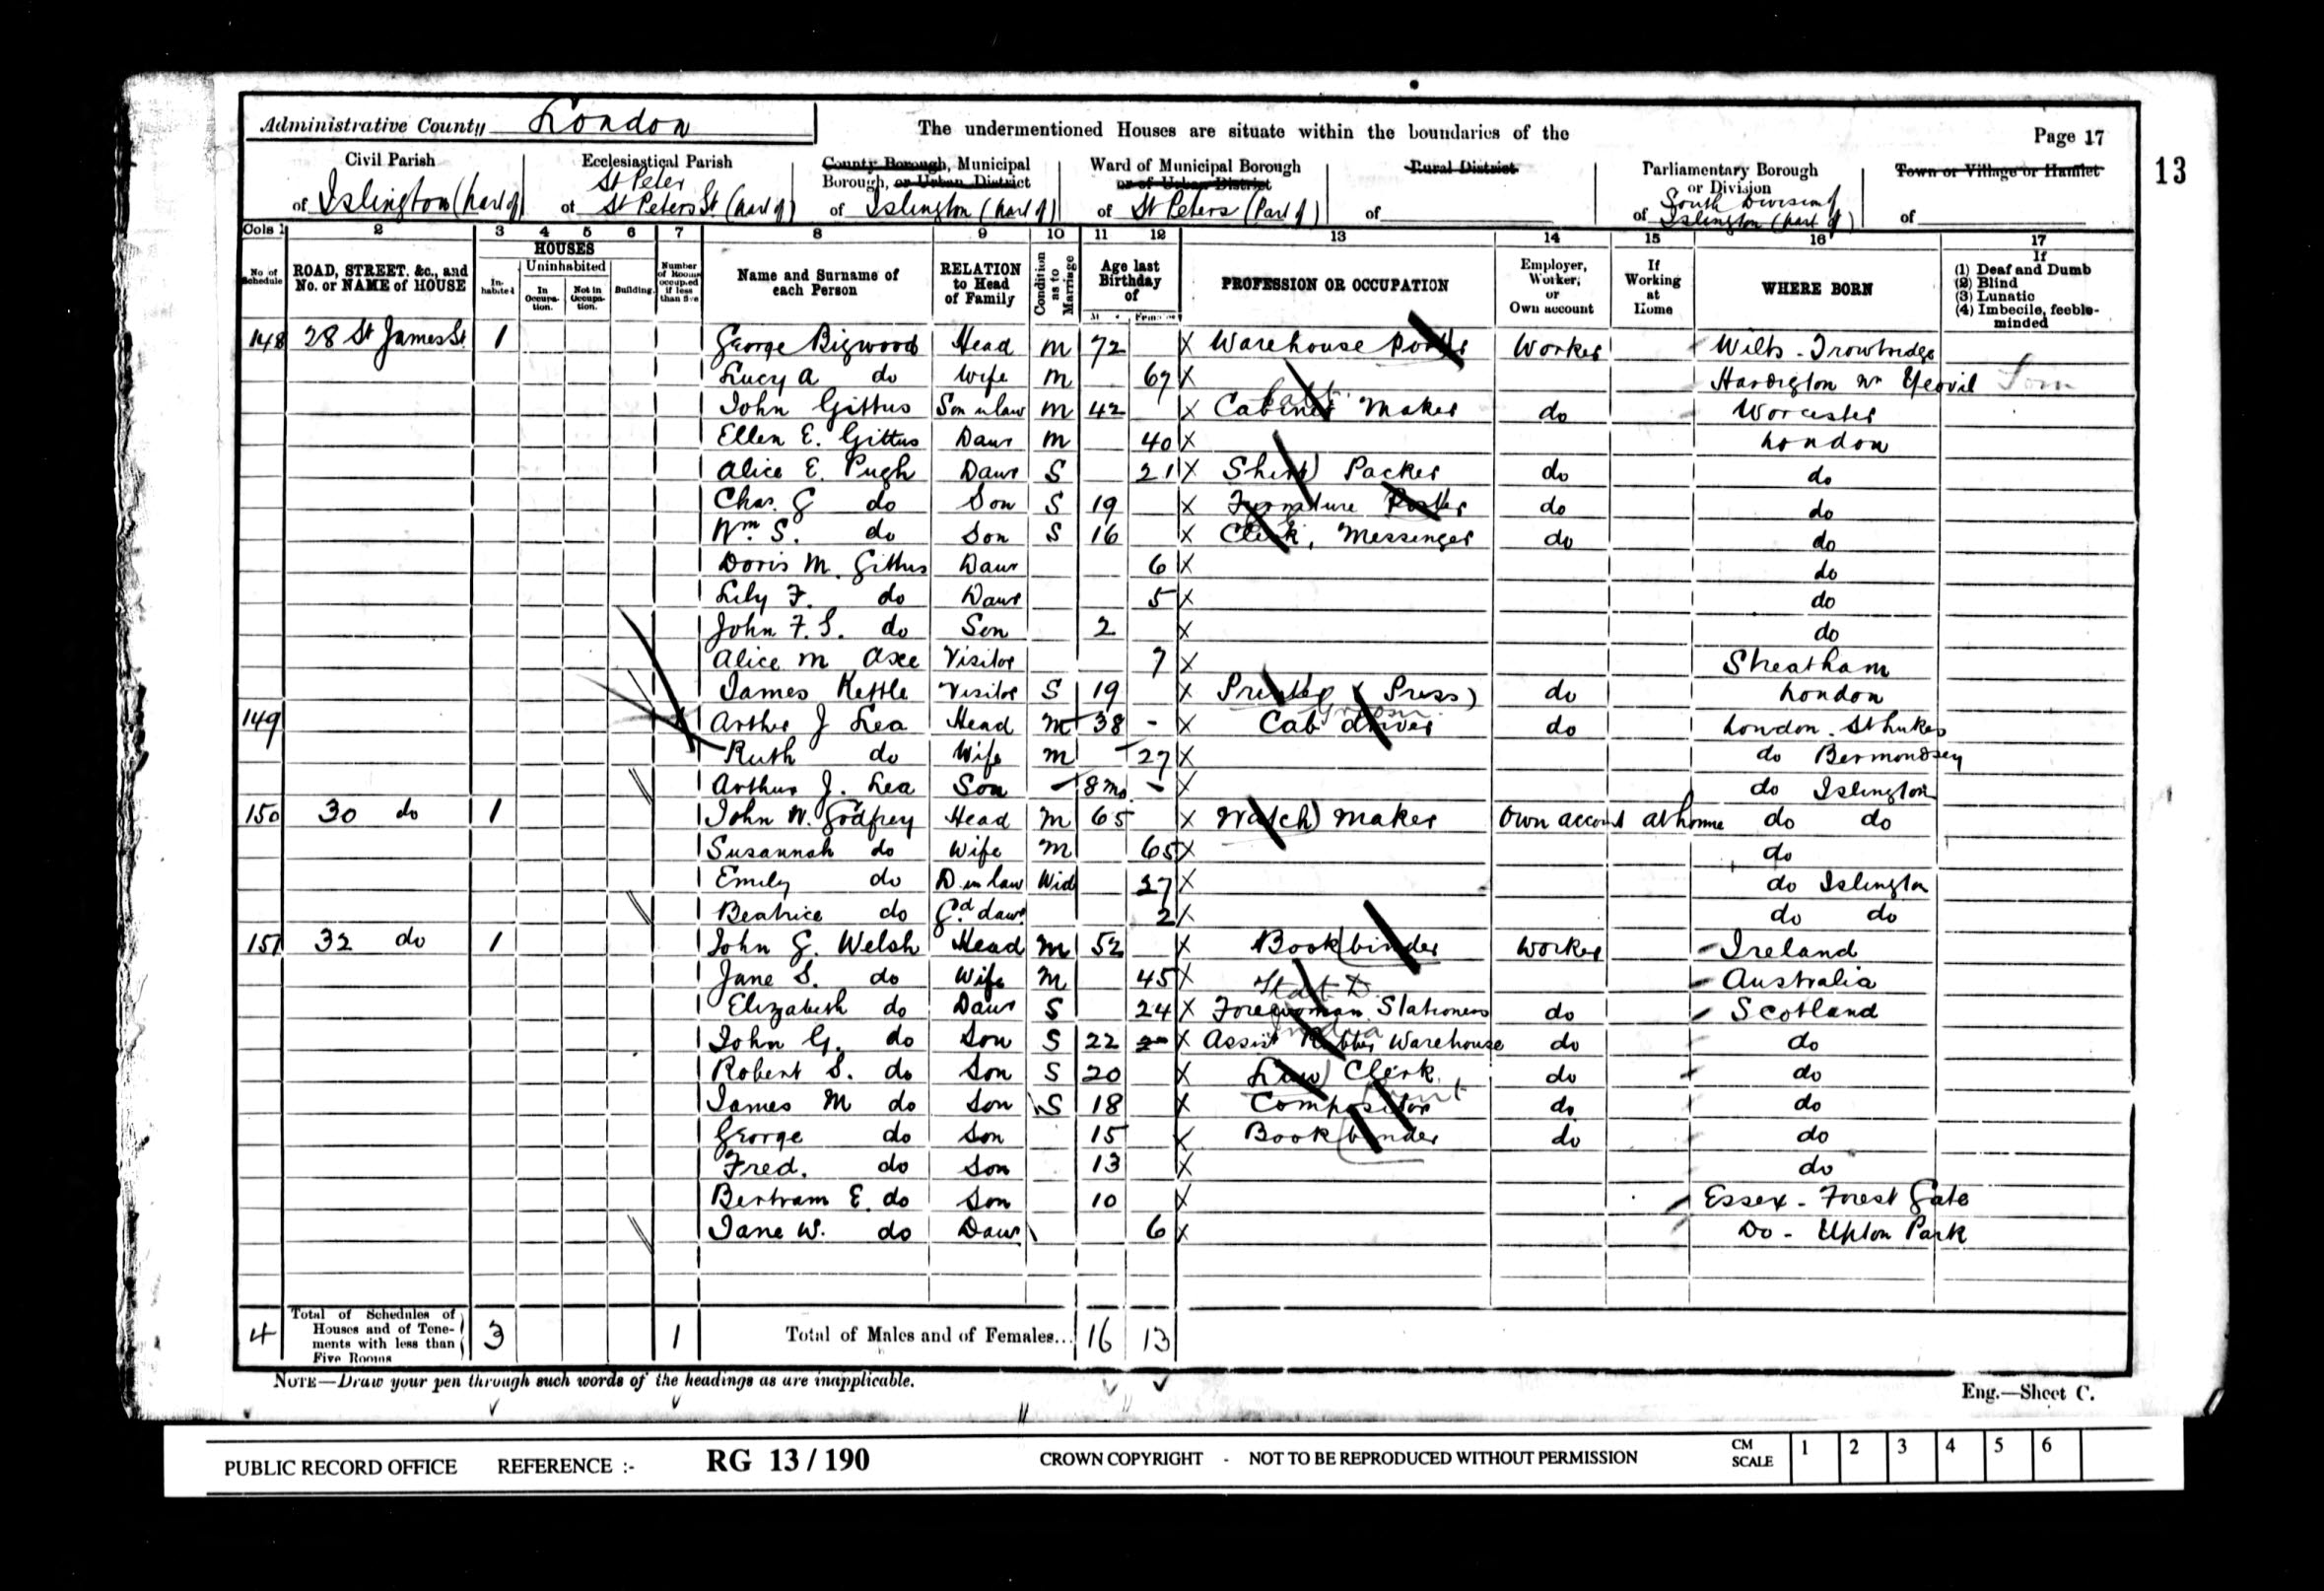 Administrative County London
The undermentioned Houses are situate within the boundaries of the
Page 17
13
Civil Parish of Islington (part of)
Ecclesiastical Parish of St Peter St Peters St (part of)
County Borough, Municipal Borough, or Urban District of Islington (part of)
Ward of Municipal Borough or of Urban District of St Peters (Part of)
Rural District of
Parliamentary Borough or Division of South Division of Islington (part of)
Town or Village or Hamlet of
Cols 1 2 3 4 5 6 7 8 9 10 11 12 13 14 15 16 17
No of Schedule
ROAD, STREET, &c., and No. or NAME of HOUSE
HOUSES
Inhabited
Uninhabited
In Occupation.
Not in Occupation.
Building.
Number of Rooms occupied if less than five
Name and Surname of each Person
RELATION to Head of Family
Condition as to Marriage
Age last Birthday of
PROFESSION OR OCCUPATION
Employer, Worker, or Own account
If Working at Home
WHERE BORN
If (1) Deaf and Dumb (2) Blind (3) Lunatic (4) Imbecile, feeble-minded
148 28 St James St 1 George Bigwood Head m 72 X Warehouse Porter Worker Wilts - Trowbridge
Lucy A do Wife m 67 X Hardigton nr Yeovil Som
John Gittus Son n law m 42 X Cabinet Maker do Worcester
Ellen E. Gittus Daur m 40 X London
Alice E. Pugh Daur S 21 X Shirt Packer do do
Chas. G do Son S 19 X Furniture Porter do do
Wm S. do Son S 16 X Clerk, Messenger do do
Doris M. Gittus Daur 6 X do
Lily F. do Daur 5 X do
John F. S. do Son 2 X do
Alice M Axe Visitor 7 X Streatham
James Kettle Visitor S 19 X Printer (Press) do London
149 Arthur J Lea Head m 38 - X Cab driver Groom do London. St Lukes
Ruth do Wife m 27 X do Bermondsey
Arthur J. Lea Son - 8 mo. - X do Islington
150 30 do 1 John W. Godfrey Head m 65 X Watch Maker Own account at home do do
Susannah do Wife m 65 X do
Emily do D in law Wid 27 X do Islington
Beatrice do Gd daur 2 X do do
151 32 do 1 John G. Welsh Head m 52 X Bookbinder Worker Ireland
Jane S. do Wife m 45 X Australia
Elizabeth do Daur S 24 X Forewoman Stationers do Scotland
John G. do Son S 22 X Assist Rubber Warehouse India do do
Robert S. do Son S 20 X Law Clerk do do
James M do Son S 18 X Compositor Print do do
George do Son 15 X Bookbinder do do
Fred. do Son 13 X do
Bertram E. do Son 10 X Essex - Forest Gate
Jane W. do Daur 6 X Do - Upton Park
4 Total of Schedules of Houses and of Tenements with less than Five Rooms 3 1 Total of Males and of Females... 16 13
NOTE—Draw your pen through such words of the headings as are inapplicable.
Eng.—Sheet C.
PUBLIC RECORD OFFICE REFERENCE :- RG 13 / 190 CROWN COPYRIGHT - NOT TO BE REPRODUCED WITHOUT PERMISSION CM SCALE 1 2 3 4 5 6